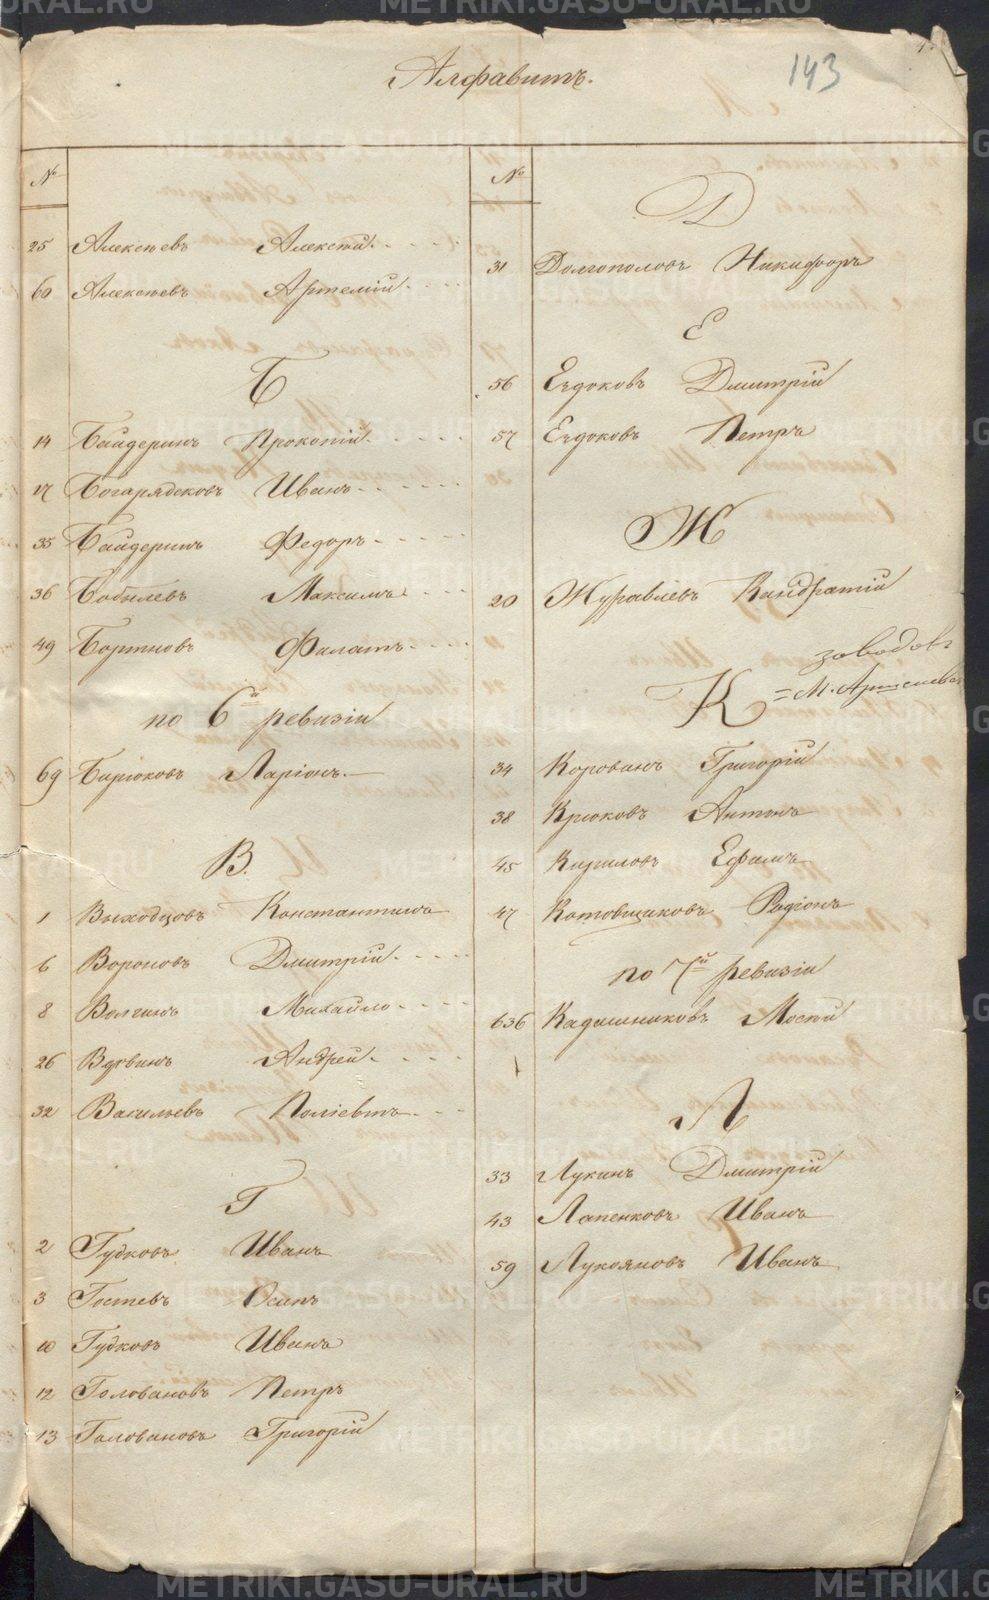 METRIKI.GASO-URAL.RU
Алфавитъ.
143
№
25 Алексѣевъ Алексѣй
60 Алексѣевъ Артемій
Б
14 Байдеринъ Прокопій
17 Богарядсковъ Иванъ
35 Байдеринъ Федоръ
36 Бобылевъ Максимъ
49 Бортновъ Филатъ
по 6й ревизіи
69 Бирюковъ Ларіонъ
В.
1 Выходцовъ Константинъ
6 Вороновъ Дмитрій
8 Волгинъ Михайло
26 Вдовинъ Андрей
32 Васильевъ Поліевтъ
Г
2 Гудковъ Иванъ
3 Гостевъ Осипъ
10 Гудковъ Иванъ
12 Головановъ Петръ
13 Головановъ Григорій
№
Д
31 Долгополовъ Никифоръ
Е
56 Евдоковъ Дмитрій
57 Евдоковъ Петръ
Ж
20 Журавлевъ Кандратій
заводовъ
К = М.
34 Корованъ Григорій
38 Крюковъ Антонъ
45 Кириловъ Ефимъ
47 Котовщиковъ Родіонъ
по 7й ревизіи
636 Кадишниковъ Мосѣй
Л
33 Лукинъ Дмитрій
43 Лапенковъ Иванъ
59 Лукояновъ Иванъ